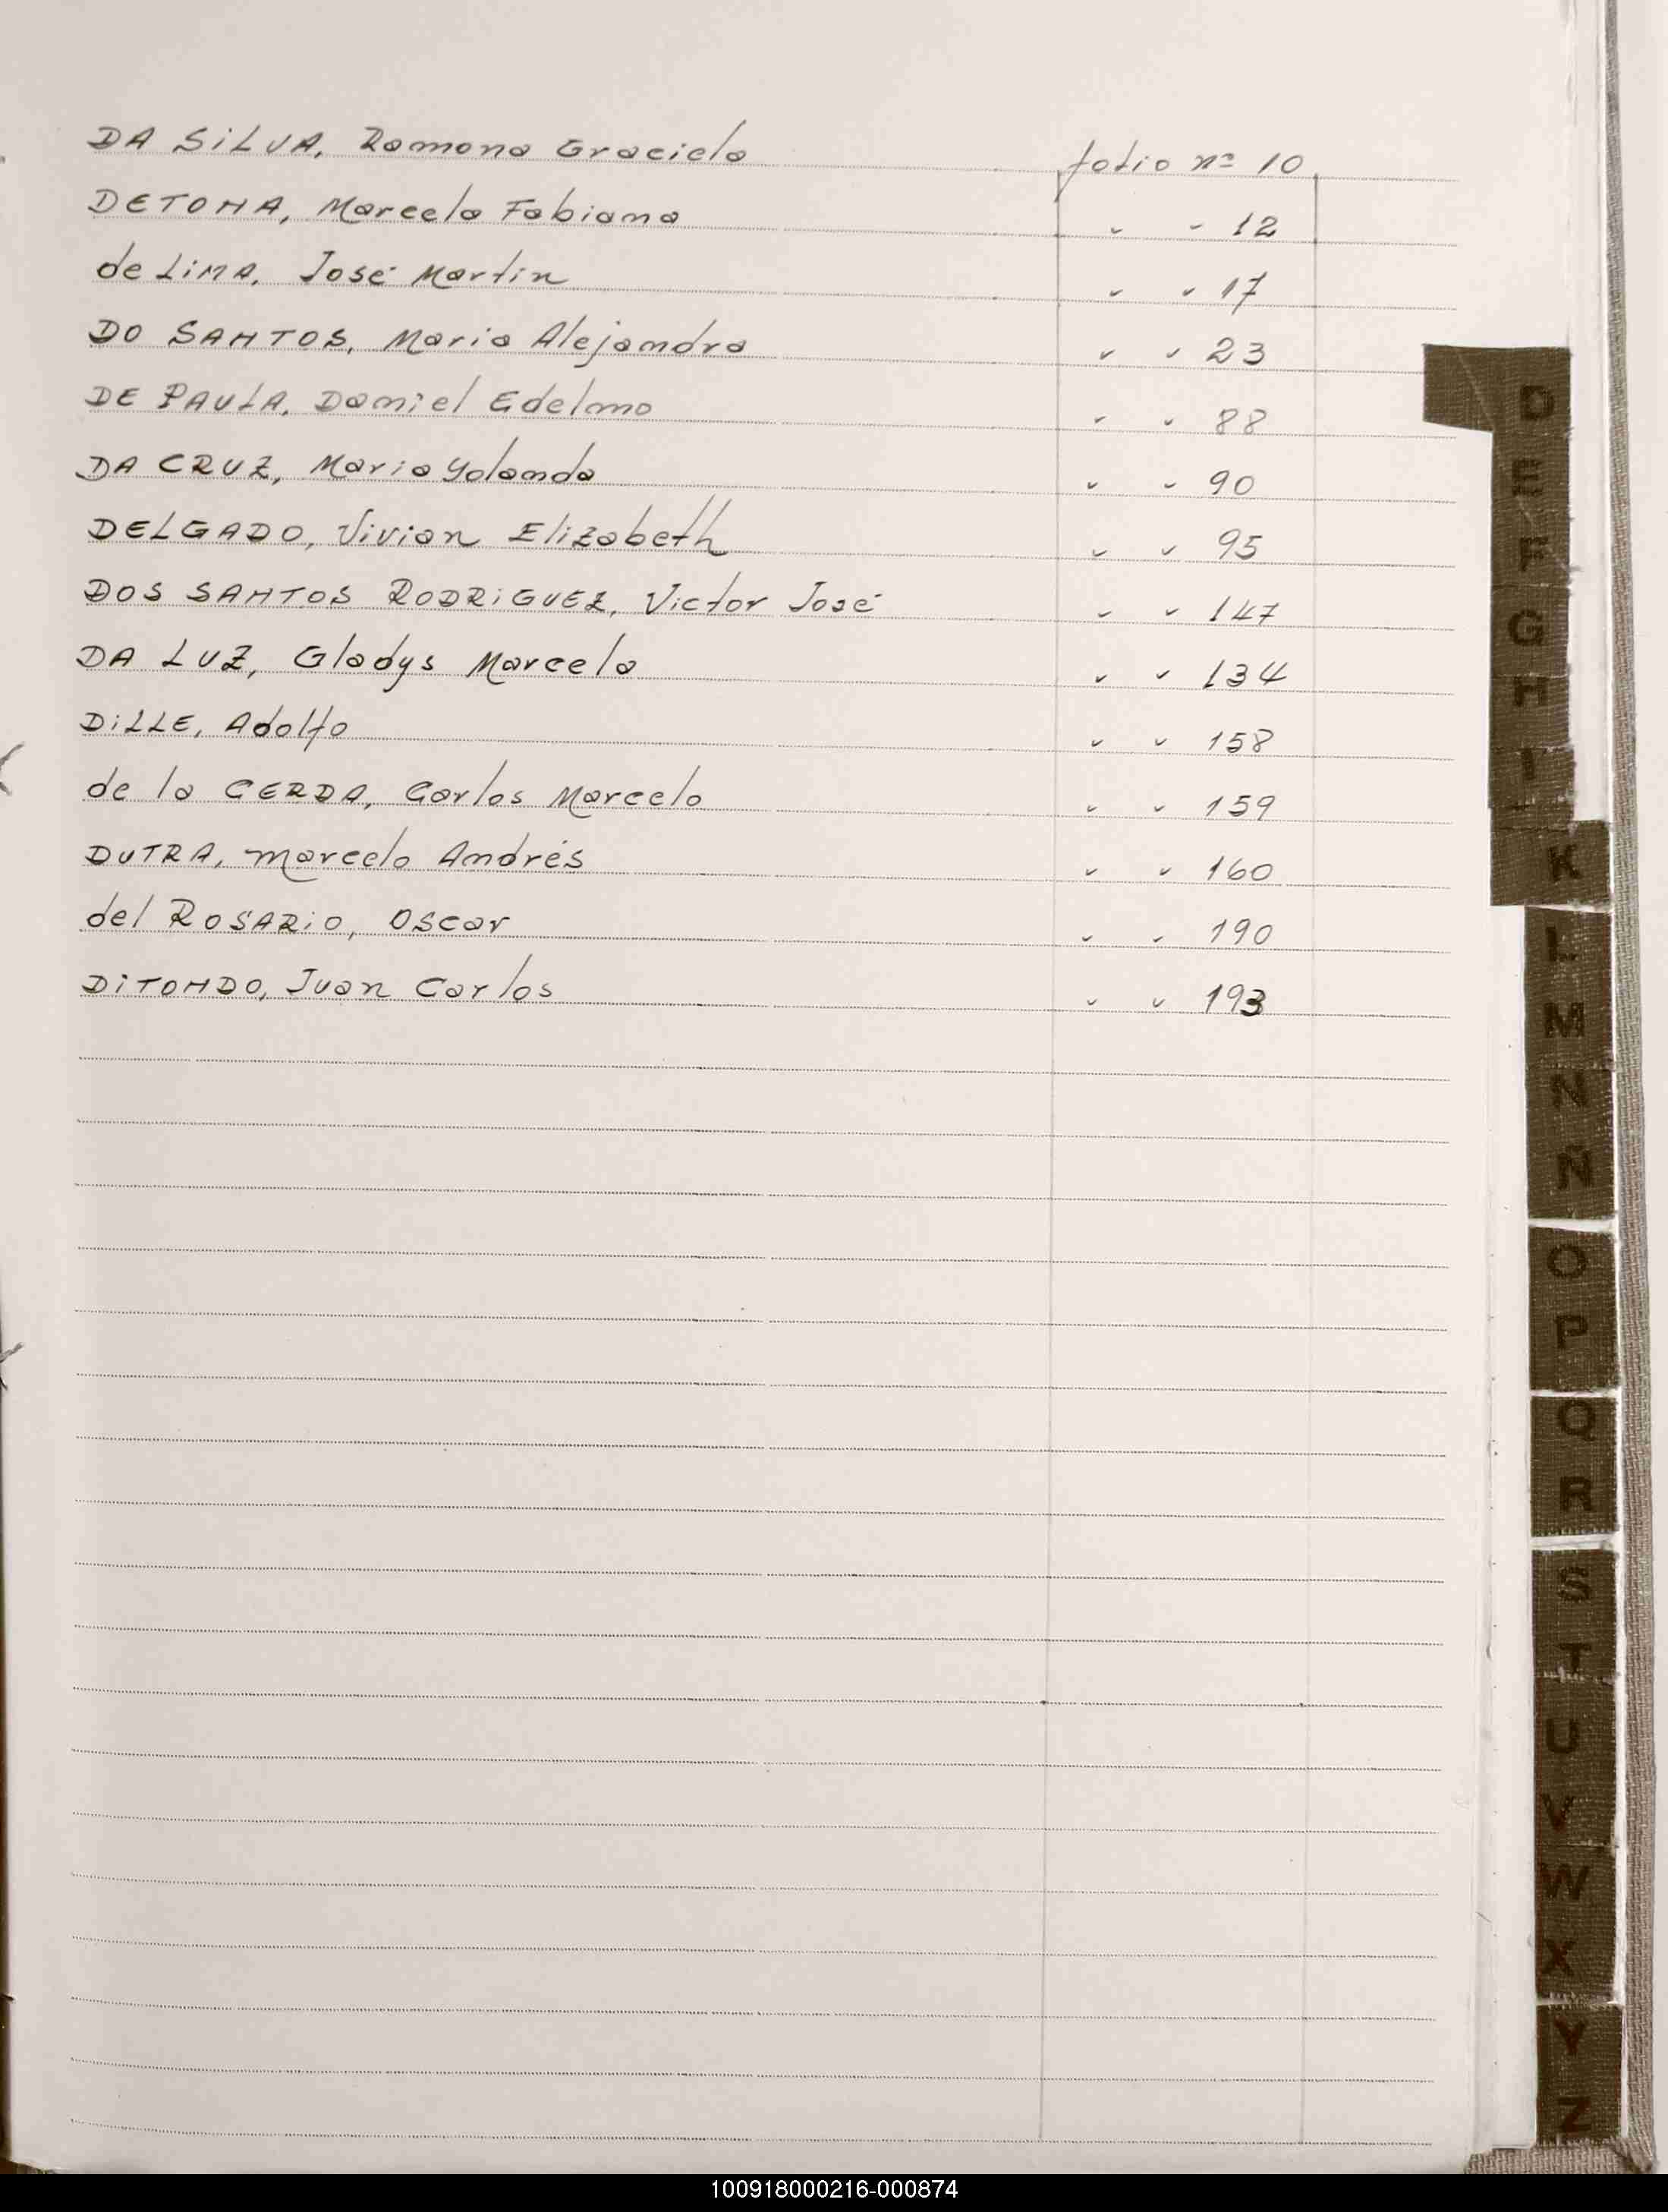 DA SiLVA, Ramona Graciela folio nº 10
DETONA, Marcela Fabiana " " 12
de LiMA, José Martin " " 17
DO SANTOS, Maria Alejandra " " 23
DE PAULA, Daniel Edelmo " " 88
DA CRUZ, Maria Yolanda " " 90
DELGADO, Vivian Elizabeth " " 95
DOS SANTOS RODRiGUEZ, Victor José " " 147
DA LUZ, Gladys Marcela " " 134
DiLLE, Adolfo " " 158
de la CERDA, Carlos Marcelo " " 159
DUTRA, Marcelo Andrés " " 160
del ROSARiO, Oscar " " 190
DiTONDO, Juan Carlos " " 193
D
E
F
G
H
I
K
L
M
N
Ñ
O
P
Q
R
S
T
U
V
W
X
Y
Z
100918000216-000874